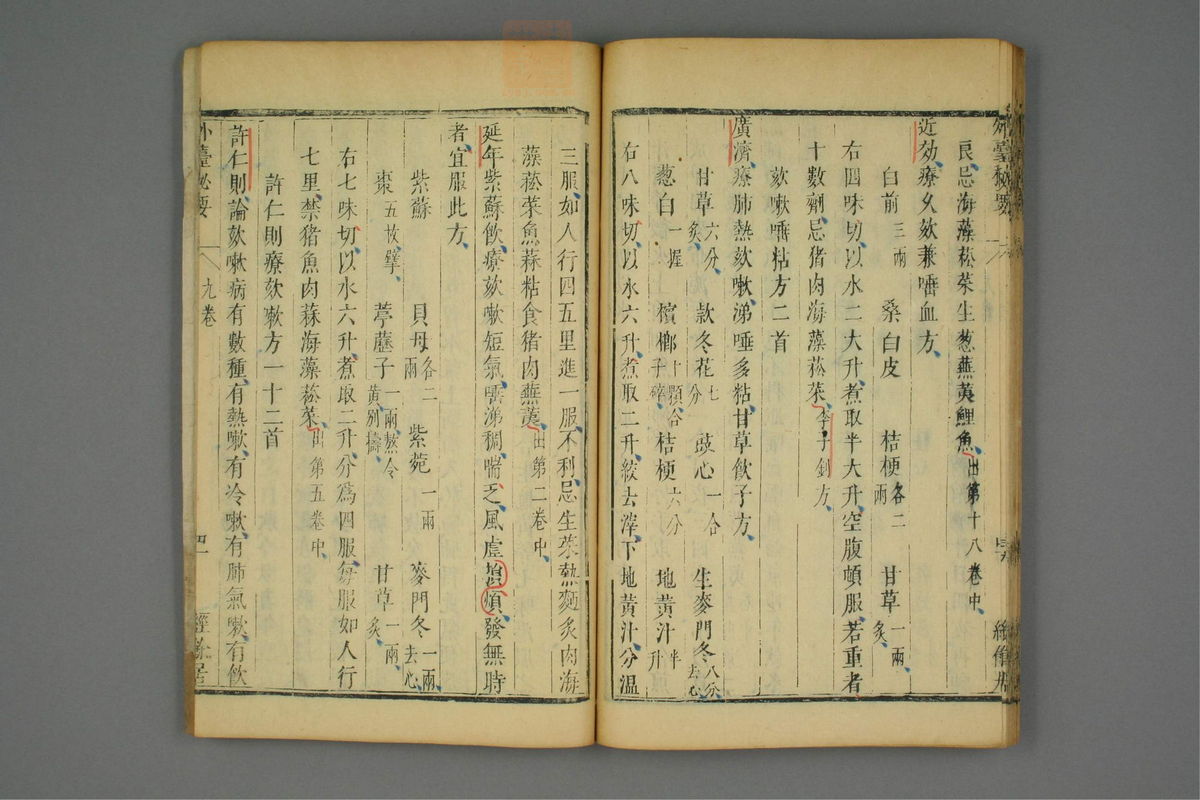 外臺秘要
良忌海藻菘菜生葱蕪荑鯉魚出第十八卷中
近効療久欬兼㗜血方
白前三兩 桑白皮 桔梗各二兩 甘草一兩炙
右四味切以水二大升煮取半大升空腹頓服若重者
十數劑忌猪肉海藻菘菜李子釗方
欬嗽唾粘方二首
廣濟療肺熱欬嗽涕唾多粘甘草飲子方
甘草六分炙 款冬花七分 豉心一合 生麥門冬八分去心
葱白一握 檳榔十顆合子碎 桔梗六分 地黃汁半升
右八味切以水六升煮取二升絞去滓下地黃汁分溫
三服如人行四五里進一服不利忌生菜熱麵炙肉海
藻菘菜魚蒜粘食猪肉蕪荑出第二卷中
延年紫蘇飲療欬嗽短氣嚏涕稠喘乏風虛煩發無時
者宜服此方
紫蘇 貝母各二兩 紫菀一兩 麥門冬一兩去心
棗五枚擘 葶藶子一兩熬令黃別擣 甘草一兩炙
右七味切以水六升煮取二升分爲四服每服如人行
七里禁猪魚肉蒜海藻菘菜出第五卷中
許仁則療欬嗽方一十二首
許仁則論欬嗽病有數種有熱嗽有冷嗽有肺氣嗽有飲
外臺秘要 九卷 經餘居